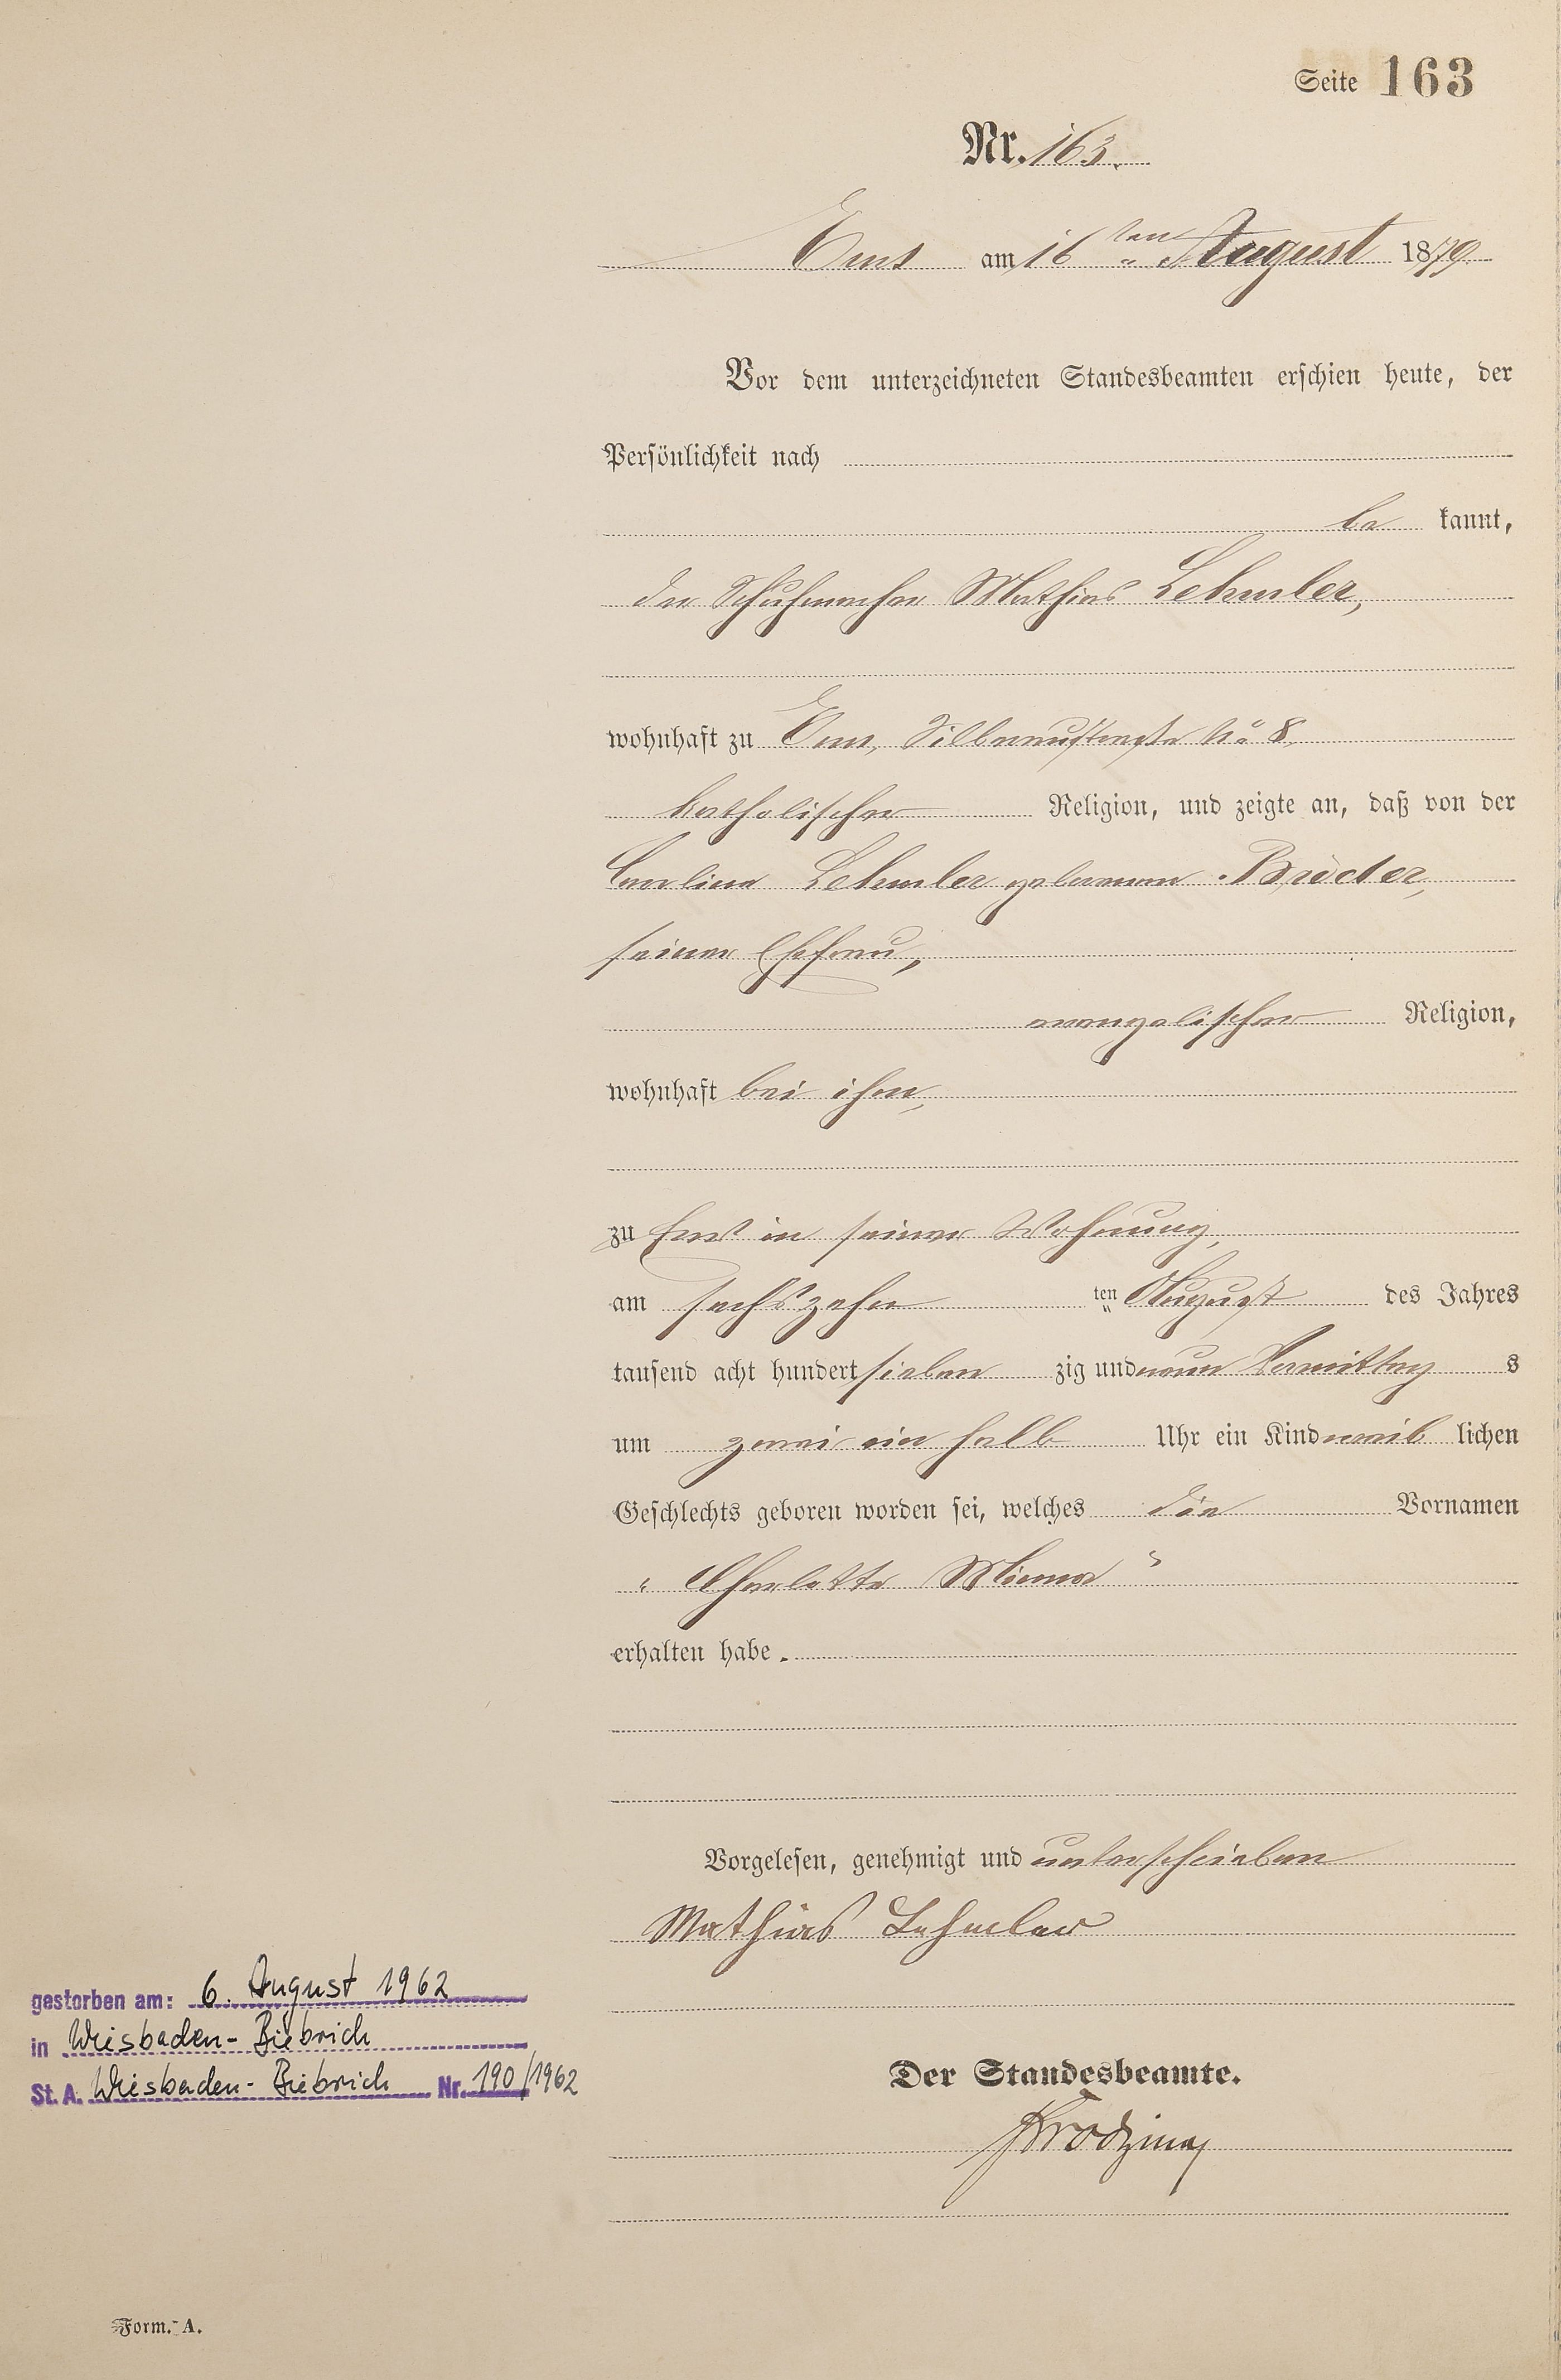 Seite 163
Nr. 163.
Ems am 16ten August 1879.
Vor dem unterzeichneten Standesbeamten erschien heute, der
Persönlichkeit nach
be kannt,
der Schuhmacher Mathias Lehmler,
wohnhaft zu Ems, Silberaustraße No 8,
katholischer Religion, und zeigte an, daß von der
Carline Lehmler geborenen
seiner Ehefrau,
evangelischer Religion,
wohnhaft bei ihm,
zu Ems in seiner Wohnung,
am sechszehn ten August des Jahres
tausend acht hundert sieben zig und neun Vormittag s
um zwei ein halb Uhr ein Kind weib lichen
Geschlechts geboren worden sei, welches die Vornamen
„Charlotte Minna"
erhalten habe.
Vorgelesen, genehmigt und unterschrieben
Mathias Lehmler
gestorben am: 6. August 1962
in Wiesbaden-Biebrich
St. A. Wiesbaden-Biebrich Nr. 190/1962
Der Standesbeamte.
Form. A.